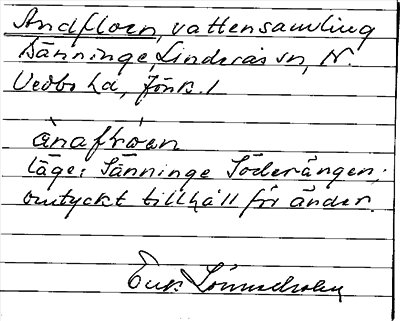 Andfloen, vattensamling
Sänninge, Linderås sn, N.
Vedbo hd, Jönk. l
läge: Sänninge Söderängen,
omtyckt tillhåll för änder.
Erik